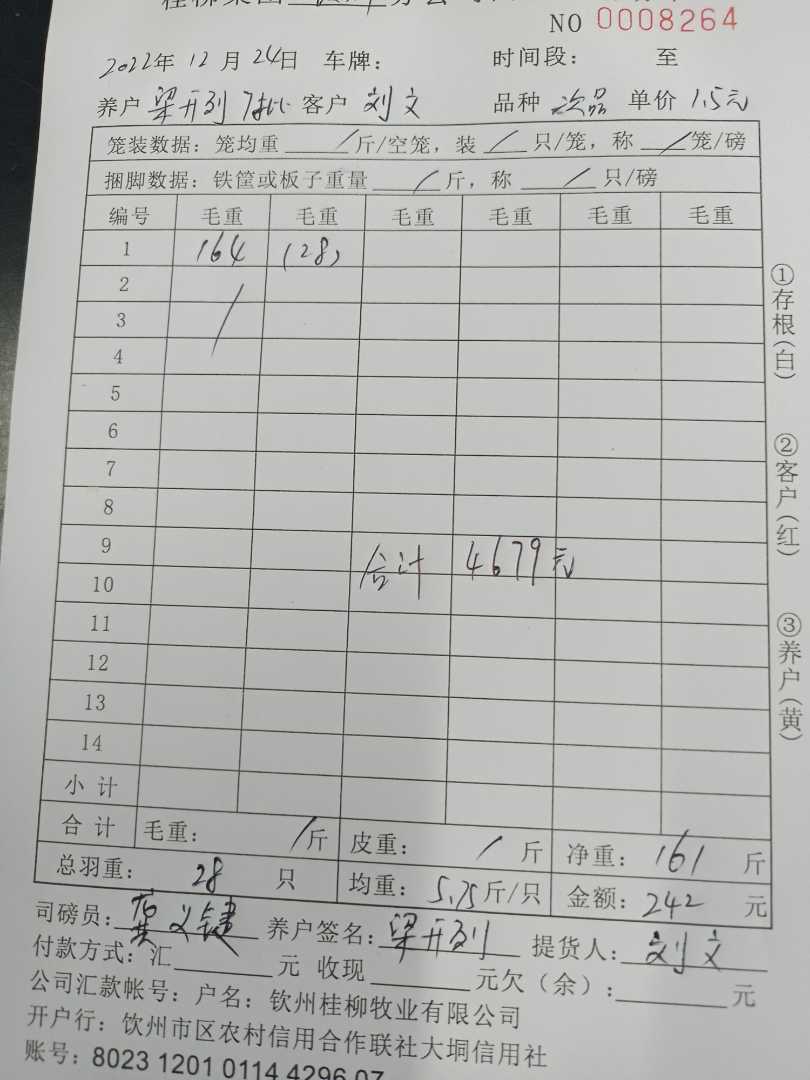 NO 0008264
2022年12月24日 车牌： 时间段： 至
养户 梁开列 7批 客户 刘文 品种 次品 单价 1.5元
笼装数据：笼均重 / 斤/空笼，装 / 只/笼，称 / 笼/磅
捆脚数据：铁筐或板子重量 / 斤，称 / 只/磅
编号 毛重 毛重 毛重 毛重 毛重 毛重
1 164 (28)
2
3
4
5
6
7
8
9
合计 4679元
10
11
12
13
14
小计
合计 毛重： / 斤 皮重： / 斤 净重：161 斤
总羽重： 28 只 均重：5.75斤/只 金额：242 元
司磅员： 养户签名：梁开列 提货人：刘文
付款方式：汇 元 收现 元欠（余）： 元
公司汇款帐号：户名：钦州桂柳牧业有限公司
开户行：钦州市区农村信用合作联社大垌信用社
账号：8023 1201 0114 4296 07
①存根(白)
②客户(红)
③养户(黄)